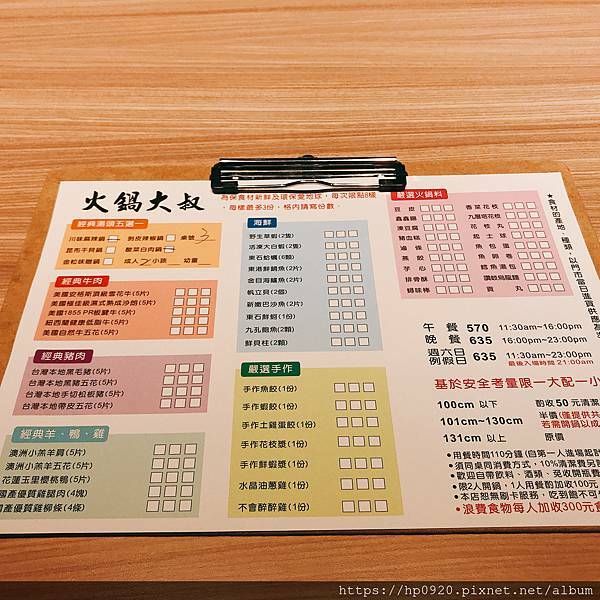 火鍋大叔
為保食材新鮮及環保愛地球，每次限點8樣
，每樣最多3份，格內請寫份數。
經典湯頭五選一
川味麻辣鍋 剝皮辣椒鍋 桌號
昆布干貝鍋 酸菜白肉鍋
金松味噌鍋 成人 小孩 幼童
經典牛肉
美國安格斯頂級雪花牛(5片)
美國極佳級濕式熟成沙朗(5片)
美國1855 PR板腱牛(5片)
紐西蘭健康低脂牛(5片)
美國自然牛五花(5片)
經典豬肉
台灣本地黑毛豬(5片)
台灣本地黑豬五花(5片)
台灣本地手切松板豬(5片)
台灣本地帶皮五花(5片)
經典羊、鴨、雞
澳洲小羔羊肩(5片)
澳洲小羔羊五花(5片)
花蓮玉里櫻桃鴨(5片)
國產優質雞腿肉(4塊)
國產優質雞柳條(4條)
海鮮
野生草蝦(2隻)
活凍大白蝦(2隻)
東石蛤蠣(6顆)
東港鮮鯛魚(2顆)
金目海鱸魚(2顆)
帆立貝(2個)
新嫩巴沙魚(2顆)
東石鮮蚵(1份)
九孔鮑魚(2顆)
鮮貝柱(2顆)
嚴選手作
手作魚餃(1份)
手作蝦餃(1份)
手作土雞蛋餃(1份)
手作花枝漿(1份)
手作鮮蝦漿(1份)
水晶油蔥雞(1份)
不會醉醉雞(1份)
嚴選火鍋料
豆皮
鑫鑫腸
凍豆腐
豬血糕
爐條
燕餃
芋心
排骨酥
蟳味棒
香菜花枝
九層塔花枝
花枝丸
起士球
魚包蛋
魚卵卷
鱈魚潮包
讚紗烏龍麵
貢丸
★食材的產地、種類，以門市當日進貨供應為準
午餐 570 11:30am~16:00pm
晚餐 635 16:00pm~23:00pm
週六日
例假日 635 11:30am~23:00pm
最後入場時間 21:00
基於安全考量限一大配一小
100cm 以下 酌收50元清潔
101cm~130cm 半價(僅提供共
若需開鍋以成
131cm 以上 原價
•用餐時間110分鐘(自第一人進場起計
•須同桌同消費方式，10%清潔費另
•歡迎自帶飲料、酒類、免收開瓶費
•限2人開鍋，1人用餐酌加收100元
•本店恕無刷卡服務，吃到飽不可
•浪費食物每人加收300元食
https://hp0920.pixnet.net/album